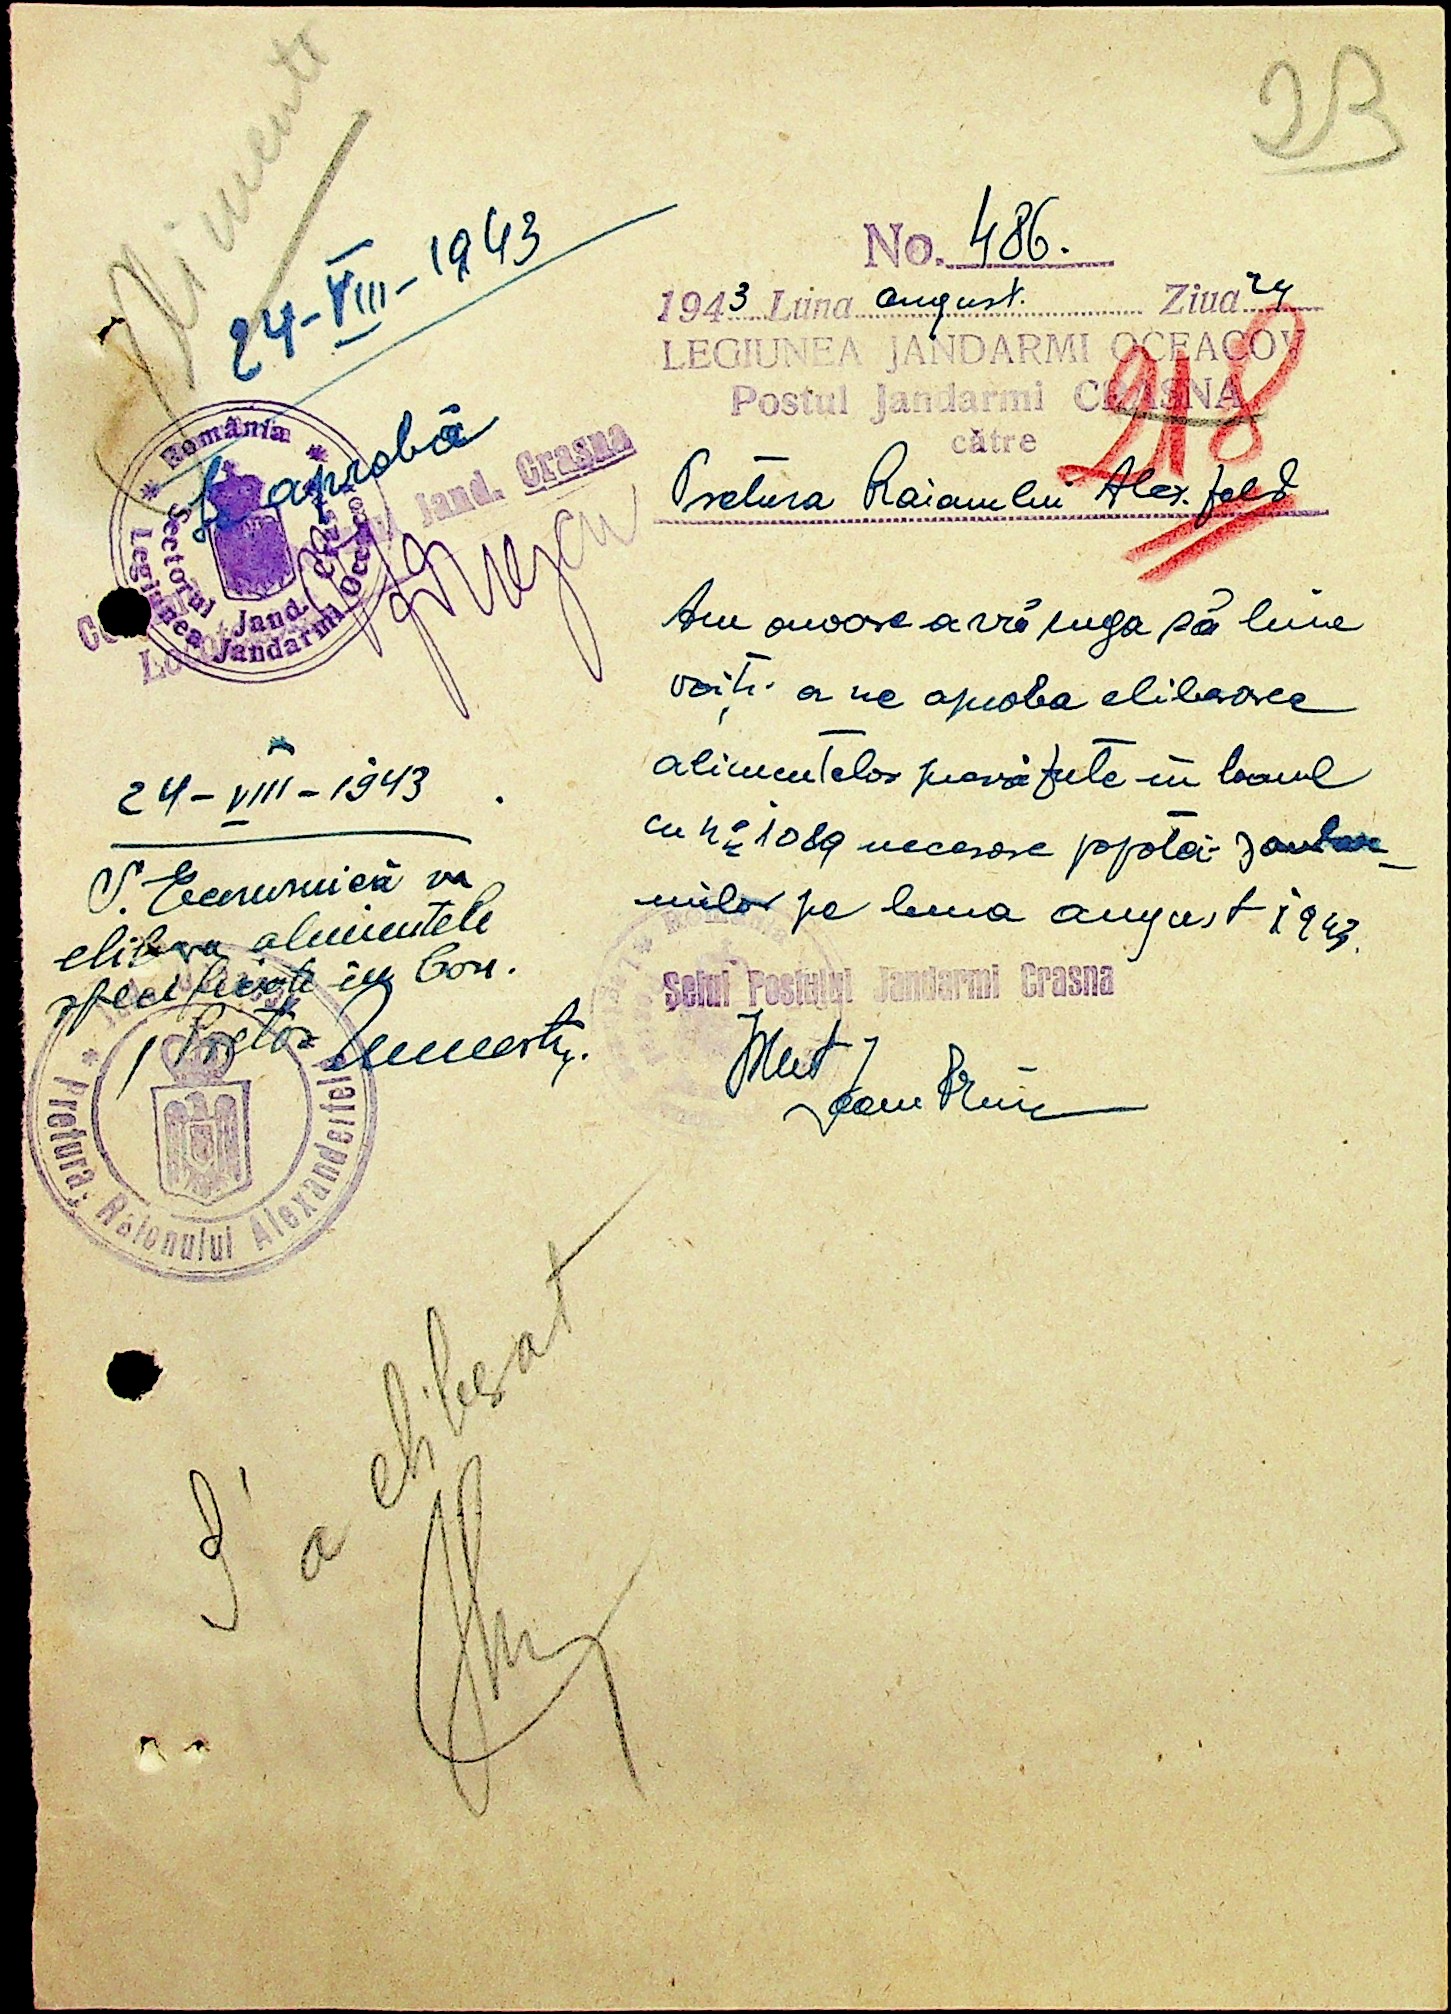 Alimente
23
24-VIII-1943
No. 486.
1943 Luna august. Ziua 24
LEGIUNEA JANDARMI OCEACOV
Postul Jandarmi CRASNA
către
218
Pretura Raionului Alex. feld
Se aprobă
România
Sectorul Jand. Crasna
Legiunea Jandarmi Oceacov
Jand. Crasna
Am onoare a vă ruga să bine
voiți a ne aproba eliberarea
alimentelor prevăzute în bonul
cu No 1089 necesare popotei Jandar-
milor pe luna august 1943.
Șeful Postului Jandarmi Crasna
24-VIII-1943
S. Economică va
elibera alimentele
specificate în bon.
Pretor
România
Pretura Raionului Alexanderfeld
S'a eliberat